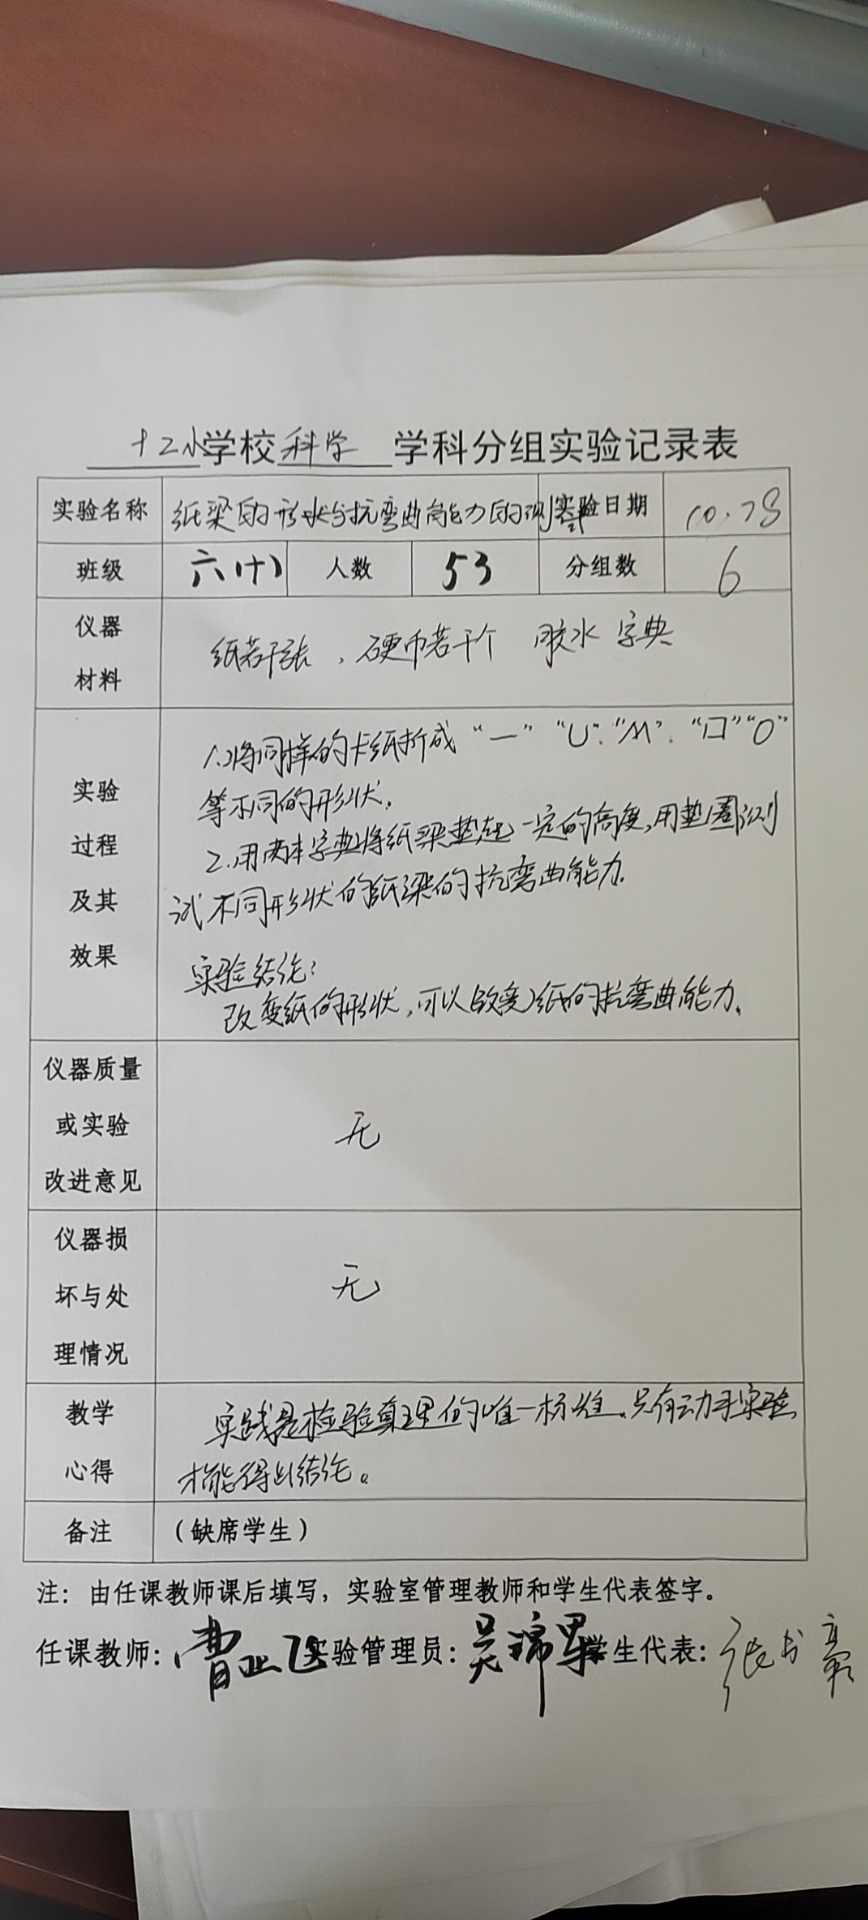 十二小学校科学 学科分组实验记录表
实验名称 纸梁的形状与抗弯曲能力的测试 实验日期 10.28
班级 六(十) 人数 53 分组数 6
仪器
材料
纸若干张,硬币若干个 胶水 字典
实验
过程
及其
效果
1.将同样的卡纸折成“一”“U”.“M”.“口”“O”
等不同的形状.
2.用两本字典将纸梁垫起一定的高度,用垫圈测
试不同形状的纸梁的抗弯曲能力.
实验结论:
改变纸的形状,可以改变纸的抗弯曲能力.
仪器质量
或实验
改进意见
无
仪器损
坏与处
理情况
无
教学
心得
实践是检验真理的唯一标准.只有动手实验
才能得出结论。
备注 (缺席学生)
注:由任课教师课后填写,实验室管理教师和学生代表签字。
任课教师: 曹 飞 实验管理员: 吴锦 学生代表: 张书豪